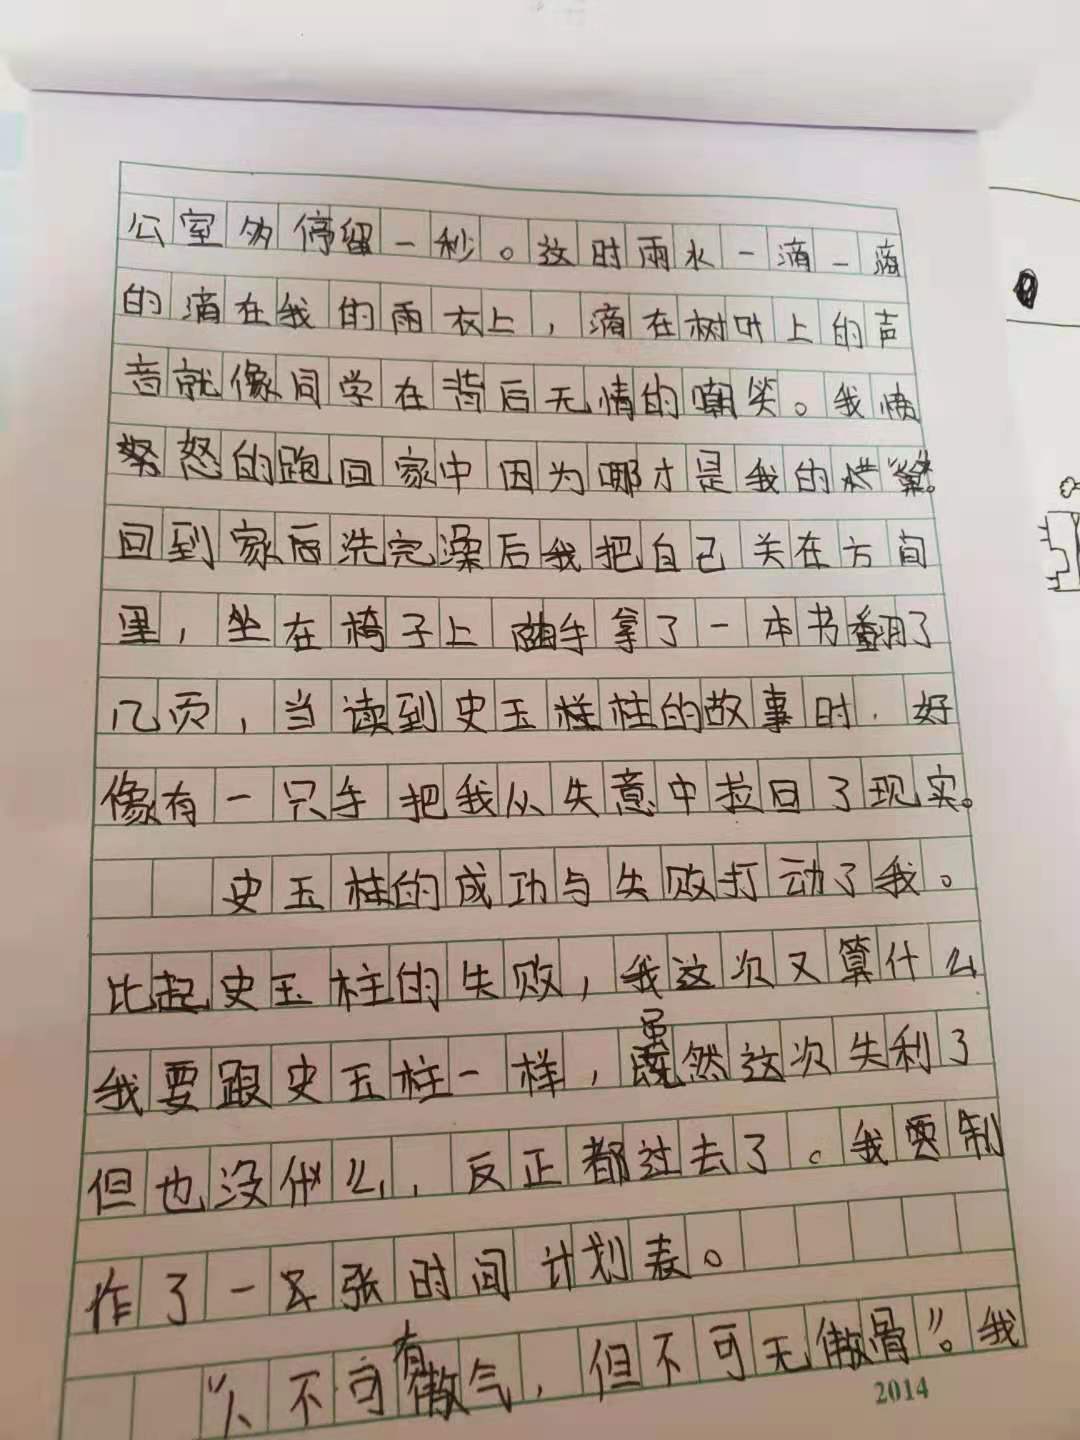 公室多停留一秒。这时雨水一滴一滴
的滴在我的雨衣上，滴在树叶上的声
音就像同学在背后无情的嘲笑。我愤
怒的跑回家中因为哪才是我的
回到家后洗完澡后我把自己关在方间
里，坐在椅子上随手拿了一本书翻了
几页，当读到史玉柱的故事时，好
像有一只手把我从失意中拉回了现实。
史玉柱的成功与失败打动了我。
比起史玉柱的失败，我这次又算什么
我要跟史玉柱一样，虽然这次失利了
但也没什么，反正都过去了。我要制
作了一张时间计划表。
“人不可有傲气，但不可无傲骨”。我
2014